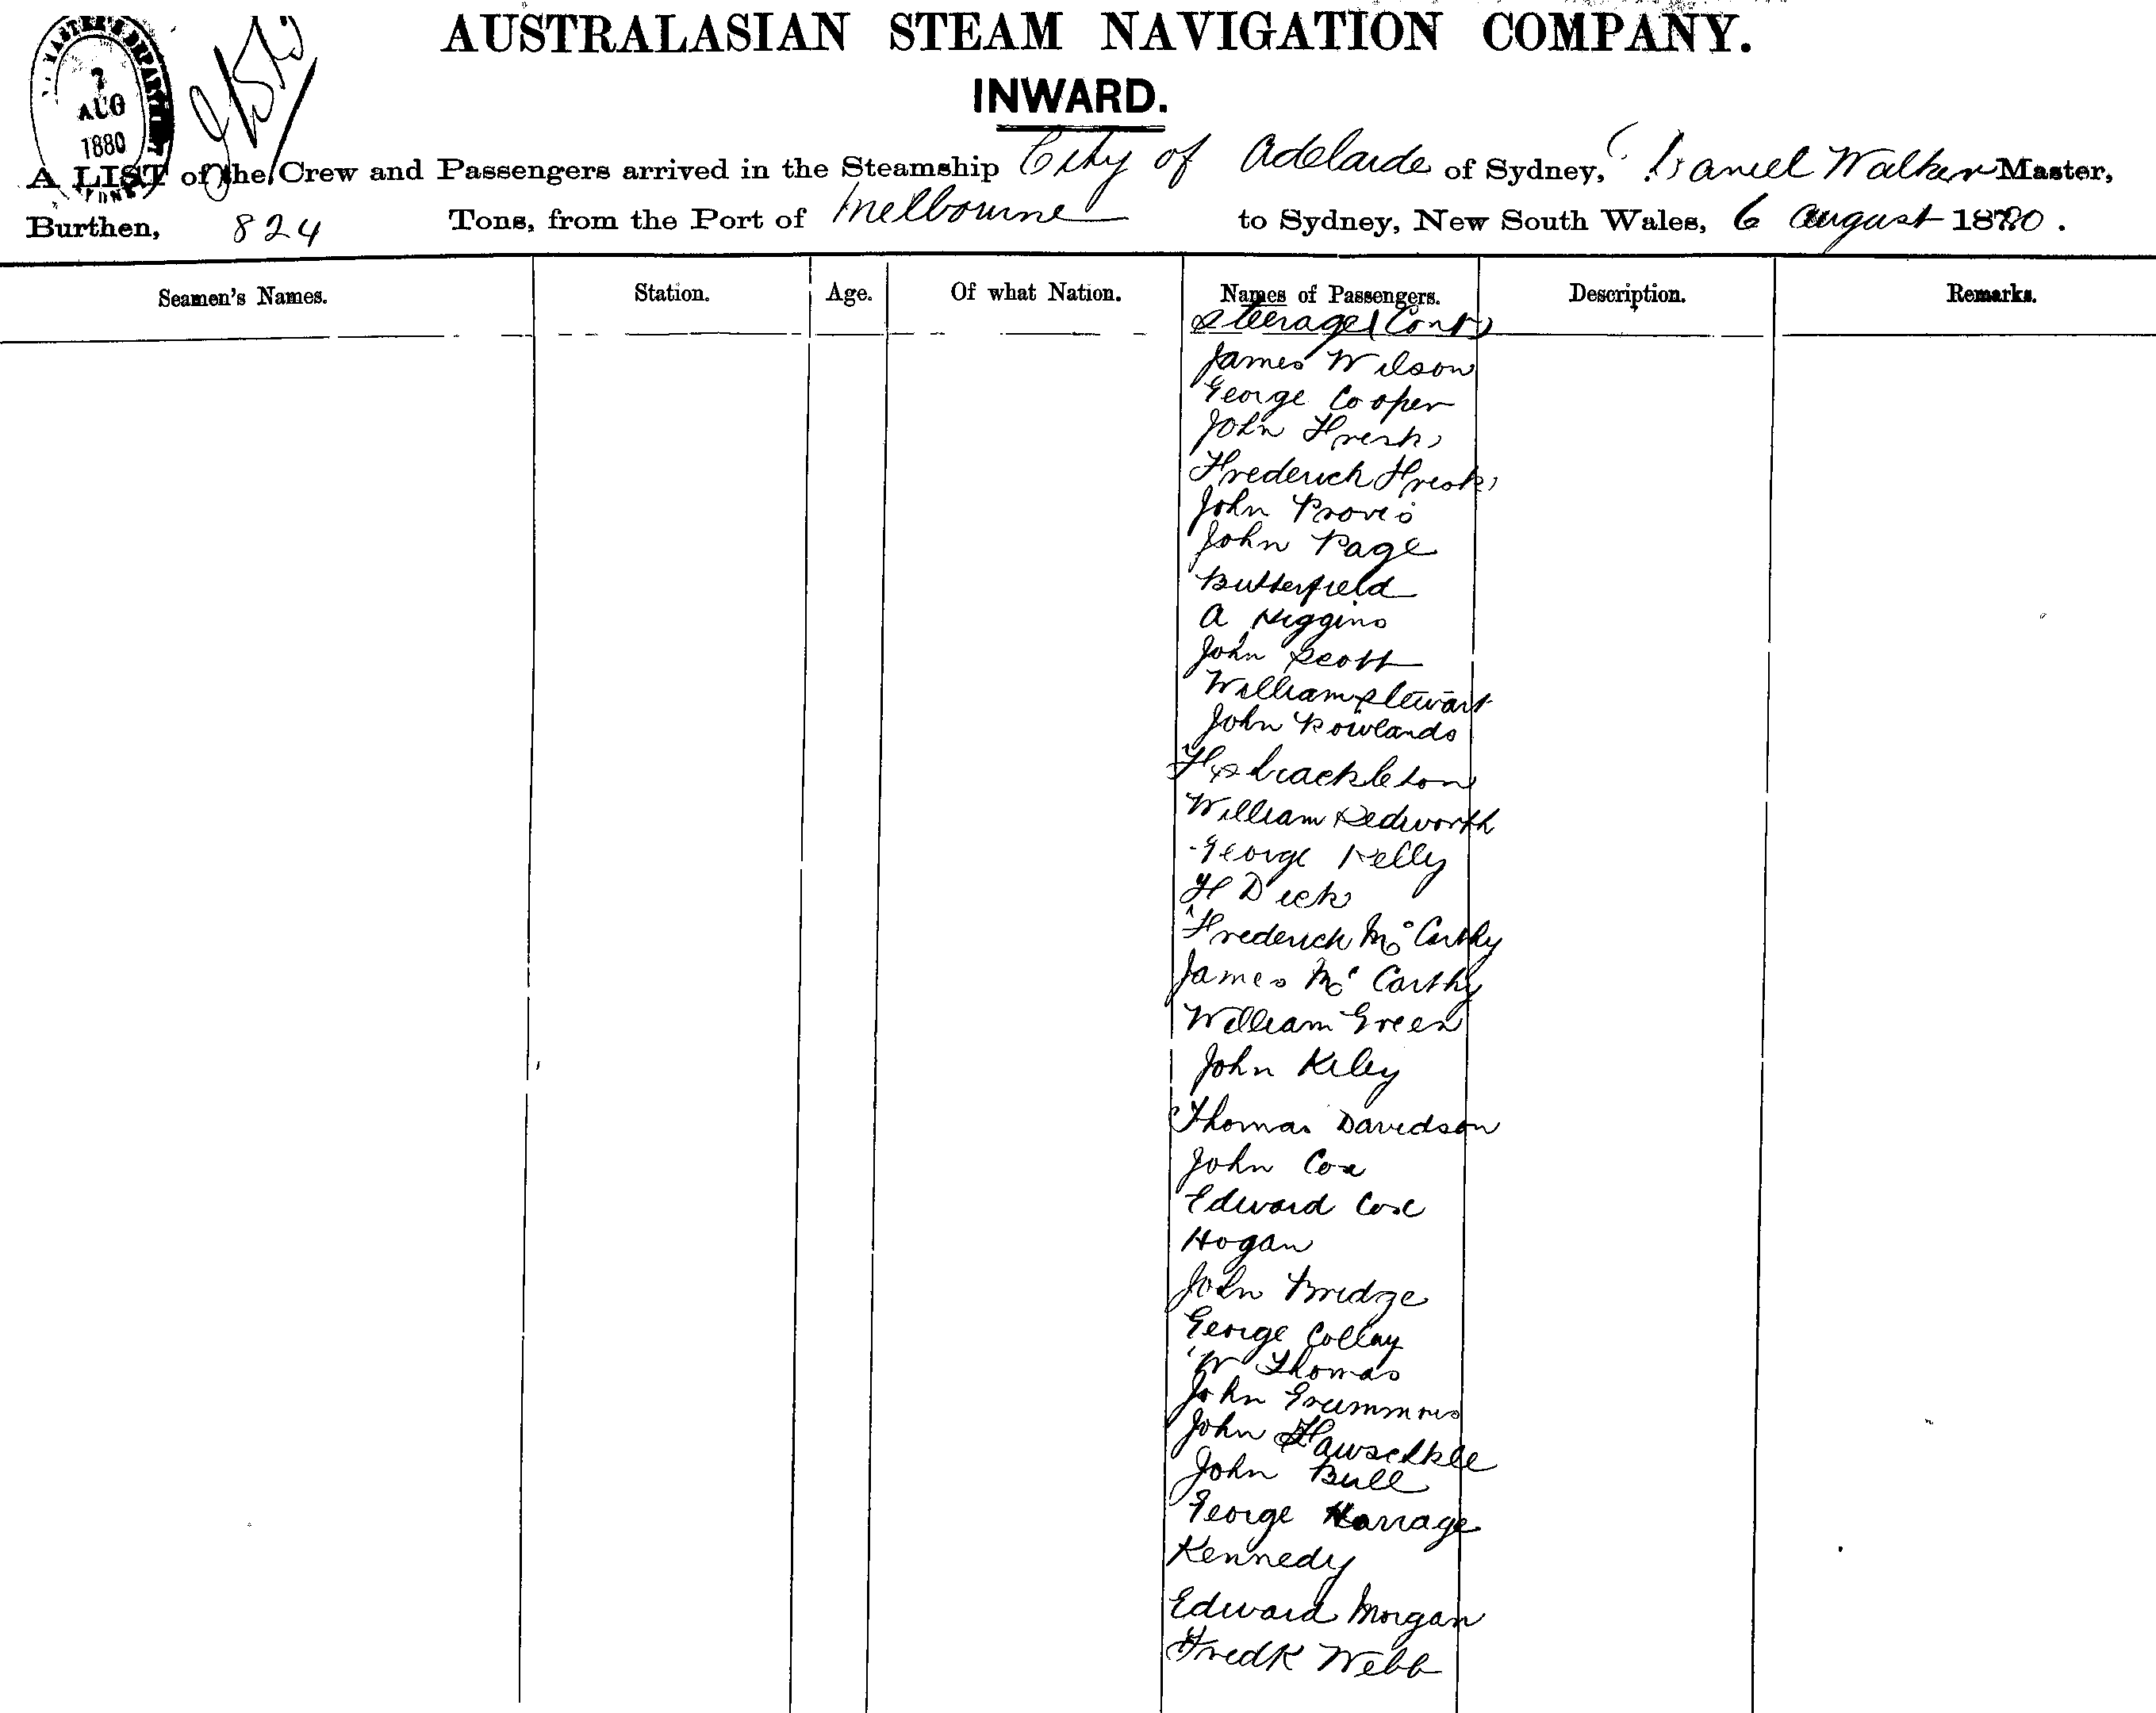 AUSTRALASIAN STEAM NAVIGATION COMPANY.
INWARD.
7
AUG
1880
A LIST of the Crew and Passengers arrived in the Steamship City of Adelaide of Sydney, Daniel Walker Master,
Burthen, 824 Tons, from the Port of Melbourne to Sydney, New South Wales, 6 August 1880.
Seamen's Names. Station. Age. Of what Nation. Names of Passengers. Description. Remarks.
Steerage (Cont)
James Wilson
George Cooper
John
Frederick
John Provis
John Page
Butterfield
A Higgins
John Scott
William Stewart
John Rowlands
William Dedworth
George Kelly
H Dick
Frederick McCarthy
James McCarthy
William Green
John Kiley
Thomas Davidson
John Cox
Edward Cox
Hogan
John Bridge
George Collay
W Thomas
John
John
John Bull
George Harrage
Kennedy
Edward Morgan
Fredk Webb